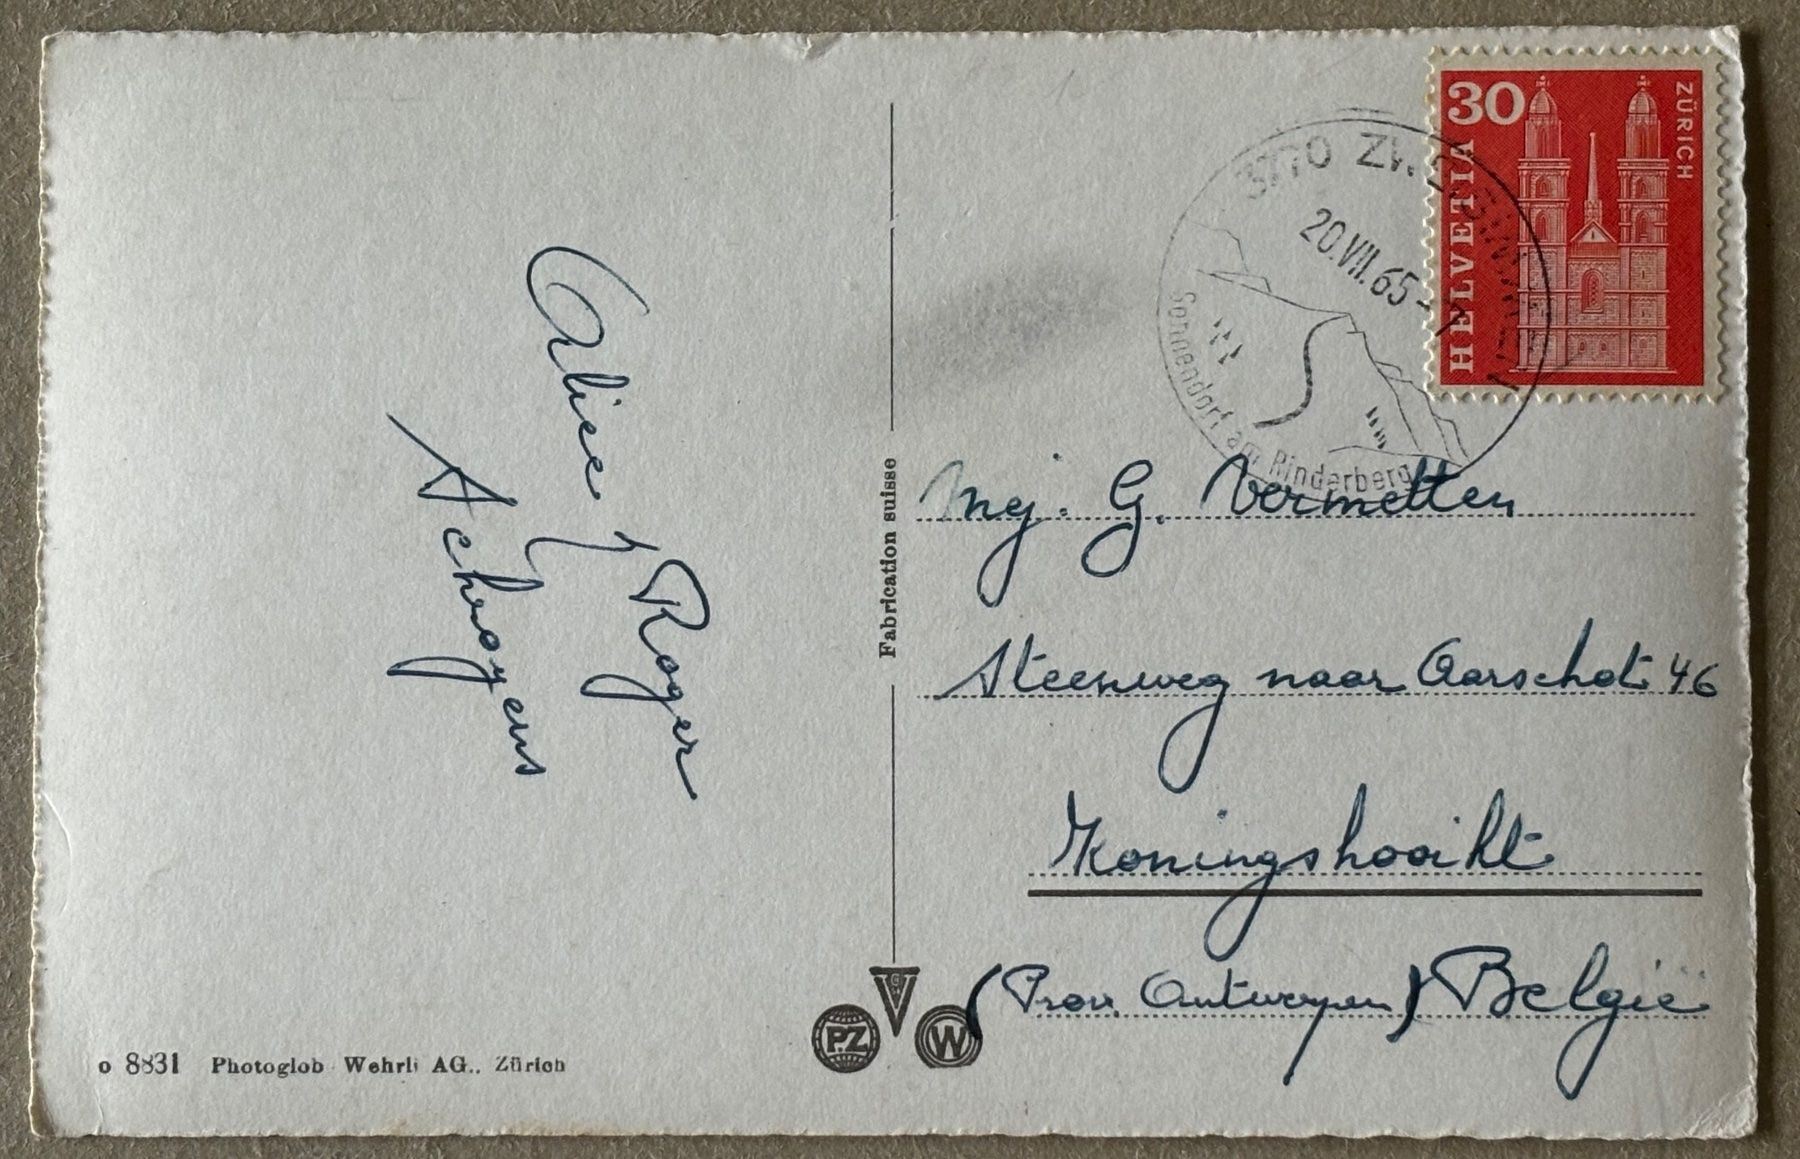 Roger
Schroyens
Fabrication suisse
o 8831 Photoglob Wehrli AG., Zürich
P.Z
W
30
HELVETIA
ZÜRICH
3770
20.VII.65
Sonnendorf am Rinderberg
Mej. G. Vermetten
Steenweg naar Aarschot 46
Koningshooikt
(Prov. Antwerpen) België